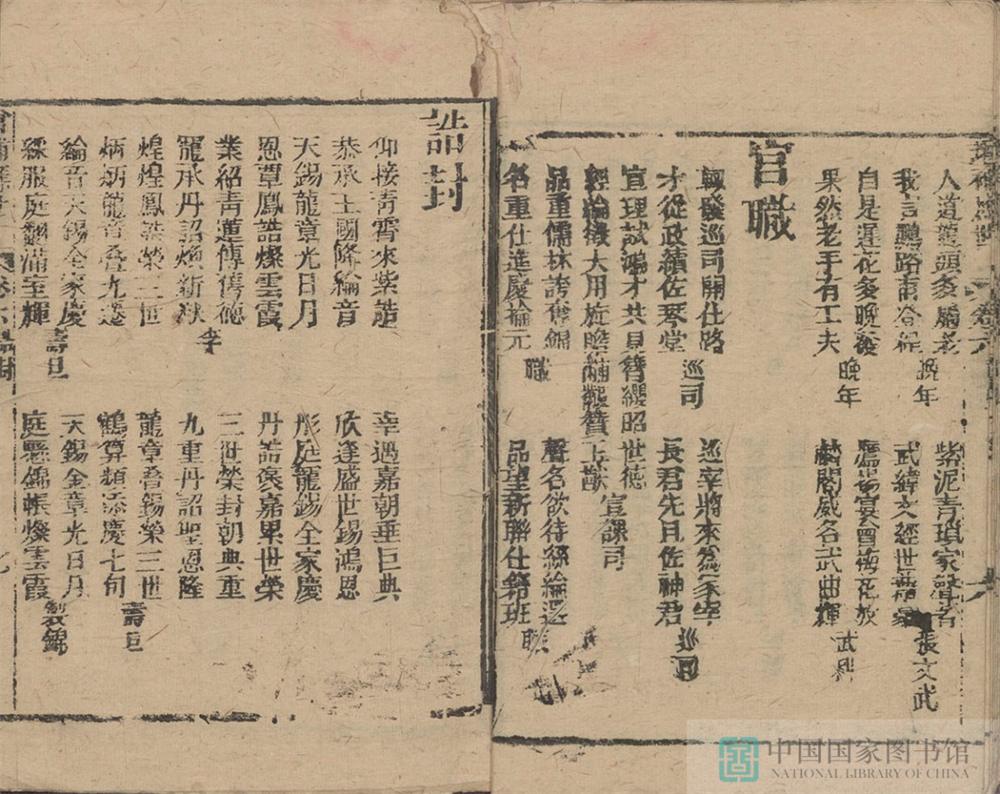 人道龍頭多屬老
我言鵬路
晚年
自是遲花多晚發
果然老手有工夫
晚年
紫泥青瑣家聲舊
武緯文經世
張文武
鷹揚宴會梅花放
麟閣威名武曲輝
武科
官職
初發巡司開仕路
才從政績佐琴堂
巡司
宣理試鴻才共見簪纓昭世德
宣課司
經綸徵大用旋瞻黼黻贊王猷
品重儒林誇奪錦
名重仕進慶掄元
職
巡宰將來為冢宰
長君先且佐神君
巡司
聲名欲待絲綸選
品望新聯仕籍班
職
誥封
仰接青霄來紫誥
恭承王國降綸音
天錫龍章光日月
恩覃鳳誥燦雲霞
業紹青蓮傳舊德
寵承丹詔煥新猷
李
煌煌鳳誥榮三世
炳炳龍音疊九遷
綸音天錫全家慶
綵服庭翻滿室輝
壽旦
幸遇嘉朝垂巨典
欣逢盛世錫鴻恩
彤庭寵錫全家慶
丹誥褒嘉累世榮
三世榮封朝典重
九重丹詔聖恩隆
龍章疊錫榮三世
鶴算頻添慶七旬
壽旦
天錫金章光日月
庭懸錦帳燦雲霞
製錦
中国国家图书馆
NATIONAL LIBRARY OF CHINA